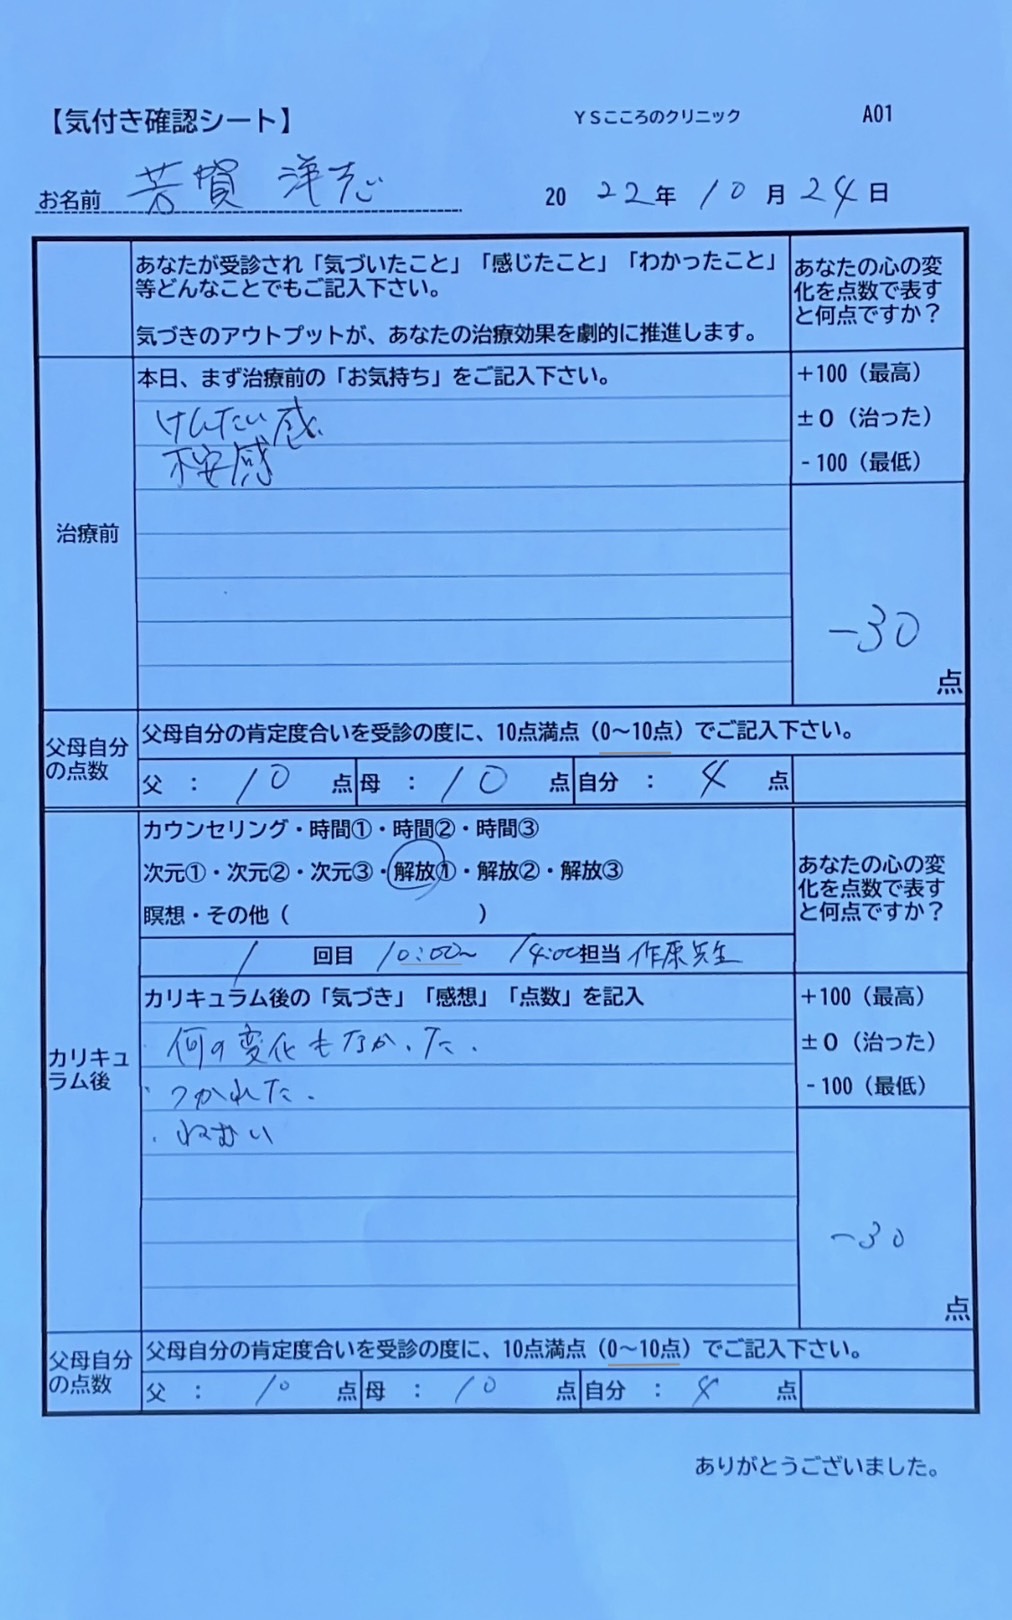 【気付き確認シート】 YSこころのクリニック A01
お名前 芳賀 洋志 2022年10月24日
あなたが受診され「気づいたこと」「感じたこと」「わかったこと」
等どんなことでもご記入下さい。
気づきのアウトプットが、あなたの治療効果を劇的に推進します。
あなたの心の変
化を点数で表す
と何点ですか？
治療前
本日、まず治療前の「お気持ち」をご記入下さい。
けんたい感
不安感
+100（最高）
±0（治った）
-100（最低）
-30
点
父母自分
の点数
父母自分の肯定度合いを受診の度に、10点満点（0～10点）でご記入下さい。
父 ： 10 点 母 ： 10 点 自分 ： 4 点
カリキュ
ラム後
カウンセリング・時間①・時間②・時間③
次元①・次元②・次元③・解放①・解放②・解放③
瞑想・その他（ ）
1 回目 10:00～ 14:00 担当 作原先生
あなたの心の変
化を点数で表す
と何点ですか？
カリキュラム後の「気づき」「感想」「点数」を記入
・何の変化もなかった.
・つかれた.
・ねむい
+100（最高）
±0（治った）
-100（最低）
-30
点
父母自分
の点数
父母自分の肯定度合いを受診の度に、10点満点（0～10点）でご記入下さい。
父 ： 10 点 母 ： 10 点 自分 ： 4 点
ありがとうございました。